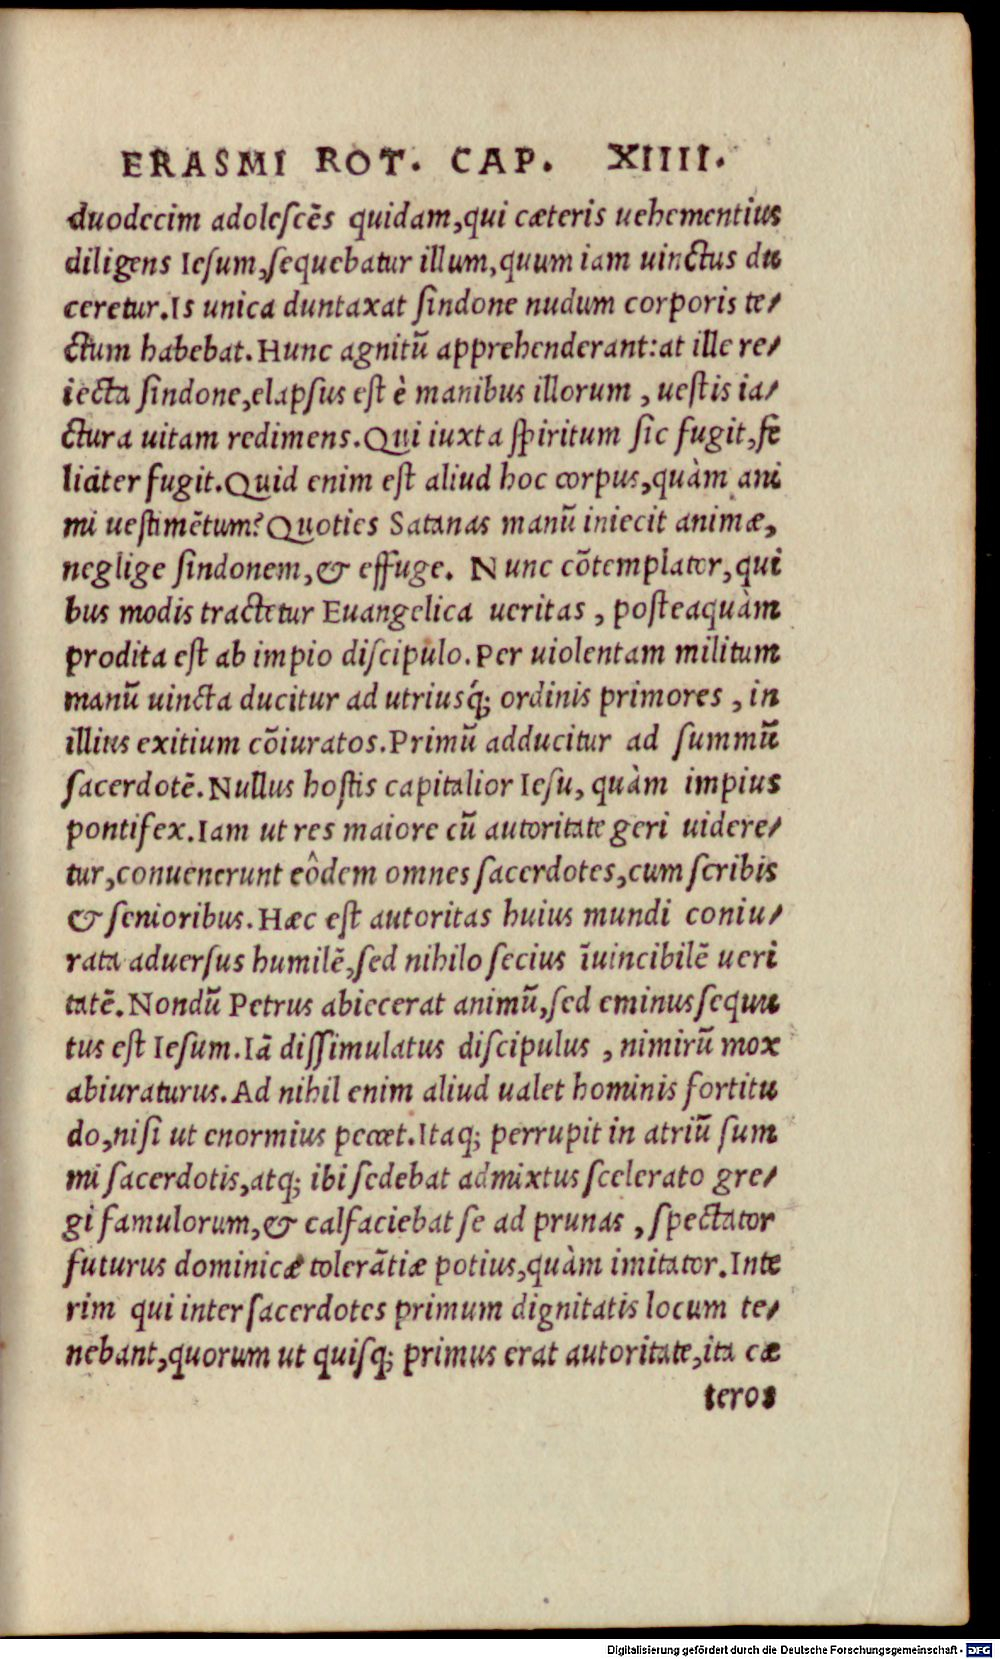 ERASMI ROT. CAP. XIIII.
duodecim adolescẽs quidam,qui cæteris uehementius
diligens Iesum,sequebatur illum,quum iam uinctus du
ceretur.Is unica duntaxat sindone nudum corporis te/
ctum habebat.Hunc agnitũ apprehenderant:at ille re/
iecta sindone,elapsus est è manibus illorum , uestis ia/
ctura uitam redimens.Qui iuxta spiritum sic fugit,fe
liciter fugit.Quid enim est aliud hoc corpus,quàm ani
mi uestimẽtum?Quoties Satanas manũ iniecit animæ,
neglige sindonem,& effuge. Nunc cõtemplator,qui
bus modis tractetur Euangelica ueritas , posteaquàm
prodita est ab impio discipulo.Per uiolentam militum
manũ uincta ducitur ad utriusq́; ordinis primores , in
illius exitium cõiuratos.Primũ adducitur ad summũ
sacerdotẽ.Nullus hostis capitalior Iesu, quàm impius
pontifex.Iam ut res maiore cũ autoritate geri uidere/
tur,conuenerunt eôdem omnes sacerdotes,cum scribis
& senioribus.Hæc est autoritas huius mundi coniu/
rata aduersus humilẽ,sed nihilo secius ĩuincibilẽ ueri
tatẽ.Nondũ Petrus abiecerat animũ,sed eminus sequu
tus est Iesum.Iã dissimulatus discipulus , nimirũ mox
abiuraturus.Ad nihil enim aliud ualet hominis fortitu
do,nisi ut enormius peccet.Itaq; perrupit in atriũ sum
mi sacerdotis,atq; ibi sedebat admixtus scelerato gre/
gi famulorum,& calfaciebat se ad prunas , spectator
futurus dominicæ tolerãtiæ potius,quàm imitator.Inte
rim qui inter sacerdotes primum dignitatis locum te/
nebant,quorum ut quisq; primus erat autoritate,ita cæ
teros
Digitalisierung gefördert durch die Deutsche Forschungsgemeinschaft - DFG